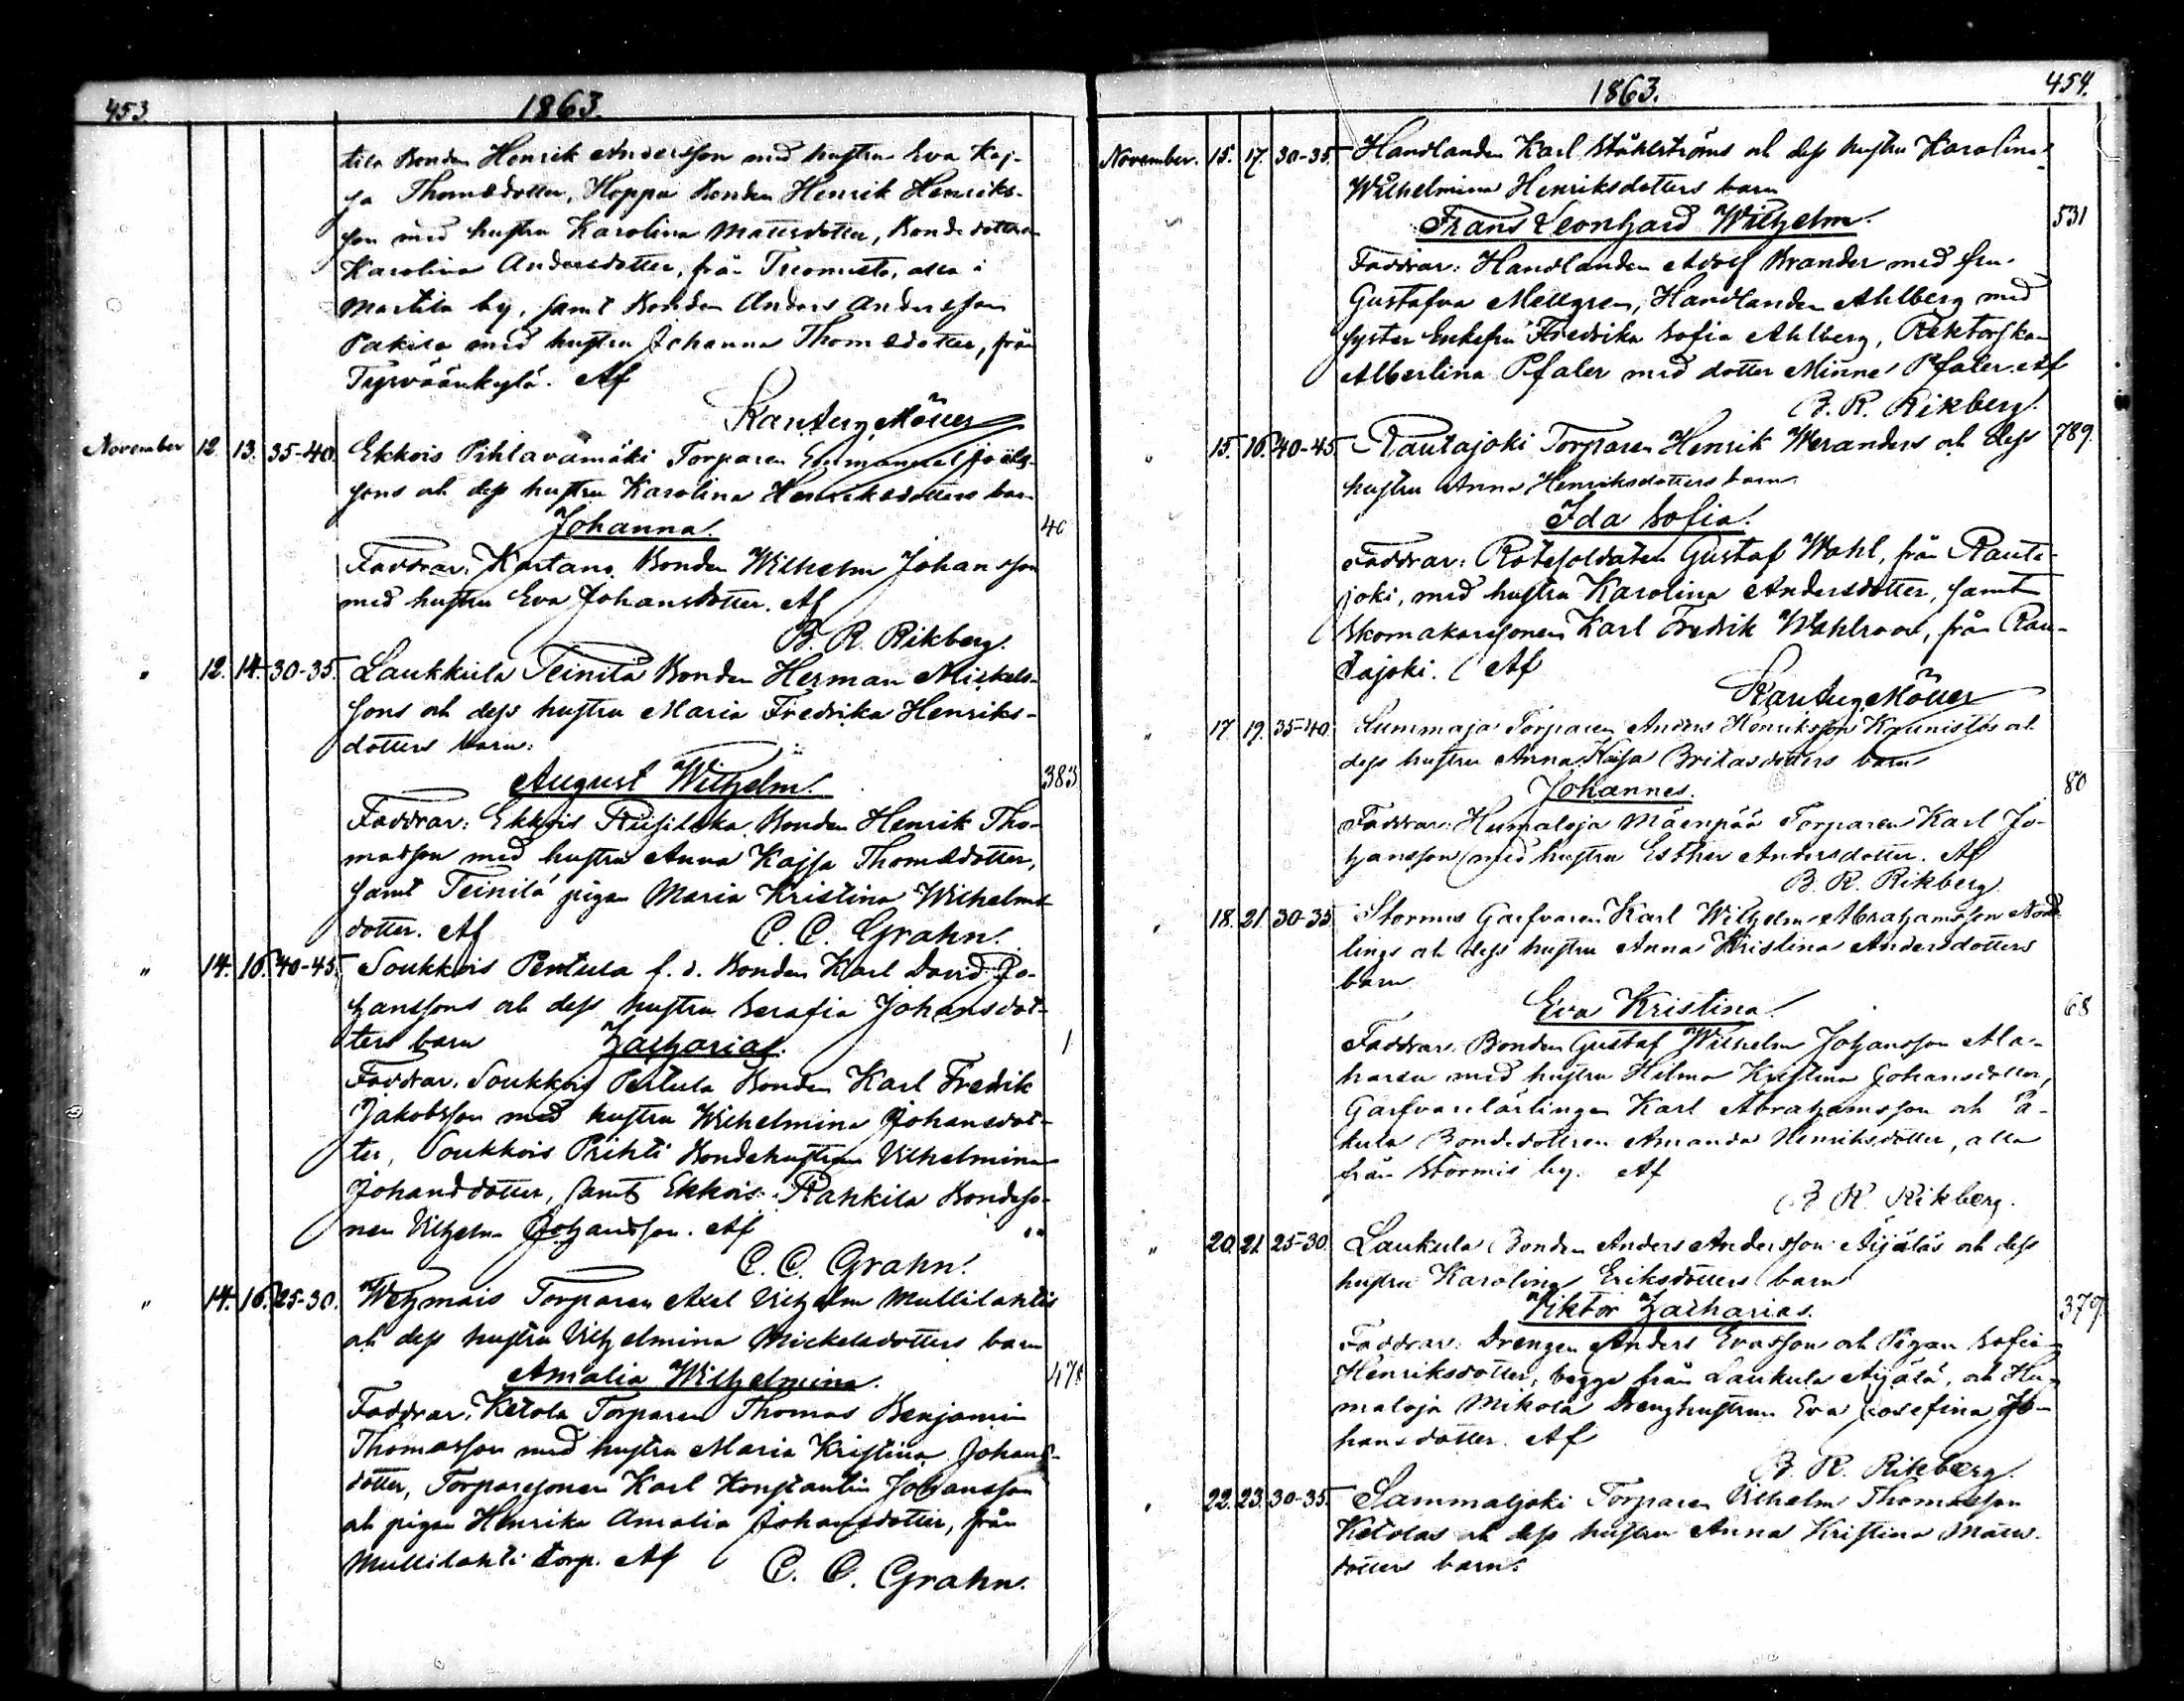 453
1863.
tila Bonden Henrik Andersson med hustru Eva Kaj-
sa Thomsdotter, Hoppa Bonden Henrik Henriks-
son med hustru Karolina Mattsdotter, Bondedottren
Karolina Andersdotter, från Tuomisto, alla i
Martila by, samt Bonden Anders Andersson
Pakila med hustru Johanna Thomsdotter, från
Tyrväänkylä. Af
November 12. 13. 35-40. Ekkois Pihlavamäki Torparen Emmanuel Joels-
sons och dess hustru Karolina Henriksdotters barn
Johanna. 40
Faddrar: Kartano Bonden Wilhelm Johansson
med hustru Eva Johansdotter. Af
B. R. Rikberg.
" 12. 14. 30-35. Laukkula Teinilä Bonden Herman Mickels-
sons och dess hustru Maria Fredrika Henriks-
dotters barn:
August Wilhelm. 383
Faddrar: Ekkois Bonden Henrik Tho-
masson med hustru Anna Kajsa Thomsdotter,
samt Teinilä pigan Maria Kristina Wilhelms-
dotter. Af C. C. Grahn.
" 14. 16. 40-45. Soukkois Pentula f. d. Bonden Karl David Jo-
hanssons och dess hustru Serafia Johansdot-
ters barn Zacharias. 1
Faddrar: Soukkois Pertula Bonden Karl Fredrik
Jakobsson med hustru Wilhelmina Johansdot-
ter, Soukkois Prihti Bondehustrun Vilhelmina
Johansdotter, samt Ekkois Rahkila Bondeso-
nen Vilhelm Johansson. Af
C. C. Grahn.
" 14. 16. 25-30. Wehmais Torparen Axel Vilhelm Mullilahtis
och dess hustru Vilhelmina Mickelsdotters barn
Amalia Wilhelmina. 478
Faddrar: Ketola Torparen Thomas Benjamin
Thomasson med hustru Maria Kristina Johans-
dotter, Torparesonen Karl Konstantin Johansson
och pigan Henrika Amalia Johansdotter, från
Mullilahti torp. Af C. C. Grahn.
1863. 454.
November. 15. 17. 30-35. Handlanden Karl Ståhlströms och dess hustru Karolina
Wilhelmina Henriksdotters barn
Frans Leonhard Wilhelm. 531
Faddrar: Handlanden Adolf Brander med fru
Gustafva Mellgren, Handlanden Ahlberg med
syster Enkefru Fredrika Sofia Ahlberg, Rektorskan
Albertina Pfaler med dotter Minna Pfaler. Af
B. R. Rikberg.
" 15. 16. 40-45. Rautajoki Torparen Henrik Weranders och dess 789.
hustru Anna Henriksdotters barn
Ida Sofia.
Faddrar: Rotesoldaten Gustaf Wahl, från Rauta-
joki, med hustru Karolina Andersdotter, samt
Skomakaresonen Karl Fredrik Wahlroos, från Rau-
tajoki. Af
" 17. 19. 35-40. Summaja Torparen Anders Henriksson Kaunistos och
dess hustru Anna Kaisa Britasdotters barn
Johannes. 80
Faddrar: Humaloja Mäenpää Torparen Karl Jo-
hansson med hustru Esther Andersdotter. Af
B. R. Rikberg.
" 18. 21. 30-35. Stormis Garfvaren Karl Wilhelm Abrahamsson Nord-
lings och dess hustru Anna Kristina Andersdotters
barn
Eva Kristina. 68
Faddrar: Bonden Gustaf Wilhelm Johansson Ala-
harsu med hustru Hilma Kristina Johansdotter,
Garfvarelärlingen Karl Abrahamsson och Pa-
kula Bondedottren Amanda Henriksdotter, alla
från Stormis by. Af
B. R. Rikberg.
" 20. 21. 25-30. Laukula Bonden Anders Andersson Äijäläs och dess
hustru Karolina Eriksdotters barn
Viktor Zacharias. 379.
Faddrar: Drengen Anders Evasson och Pigan Sofia
Henriksdotter, begge från Laukula Äijälä, och Hu-
maloja Mikola Drenghustrun Eva Josefina Jo-
hansdotter. Af
B. R. Rikberg.
" 22. 23. 30-35. Sammaljoki Torparen Vilhelm Thomasson
Ketolas och dess hustru Anna Kristina Matts-
dotters barn: